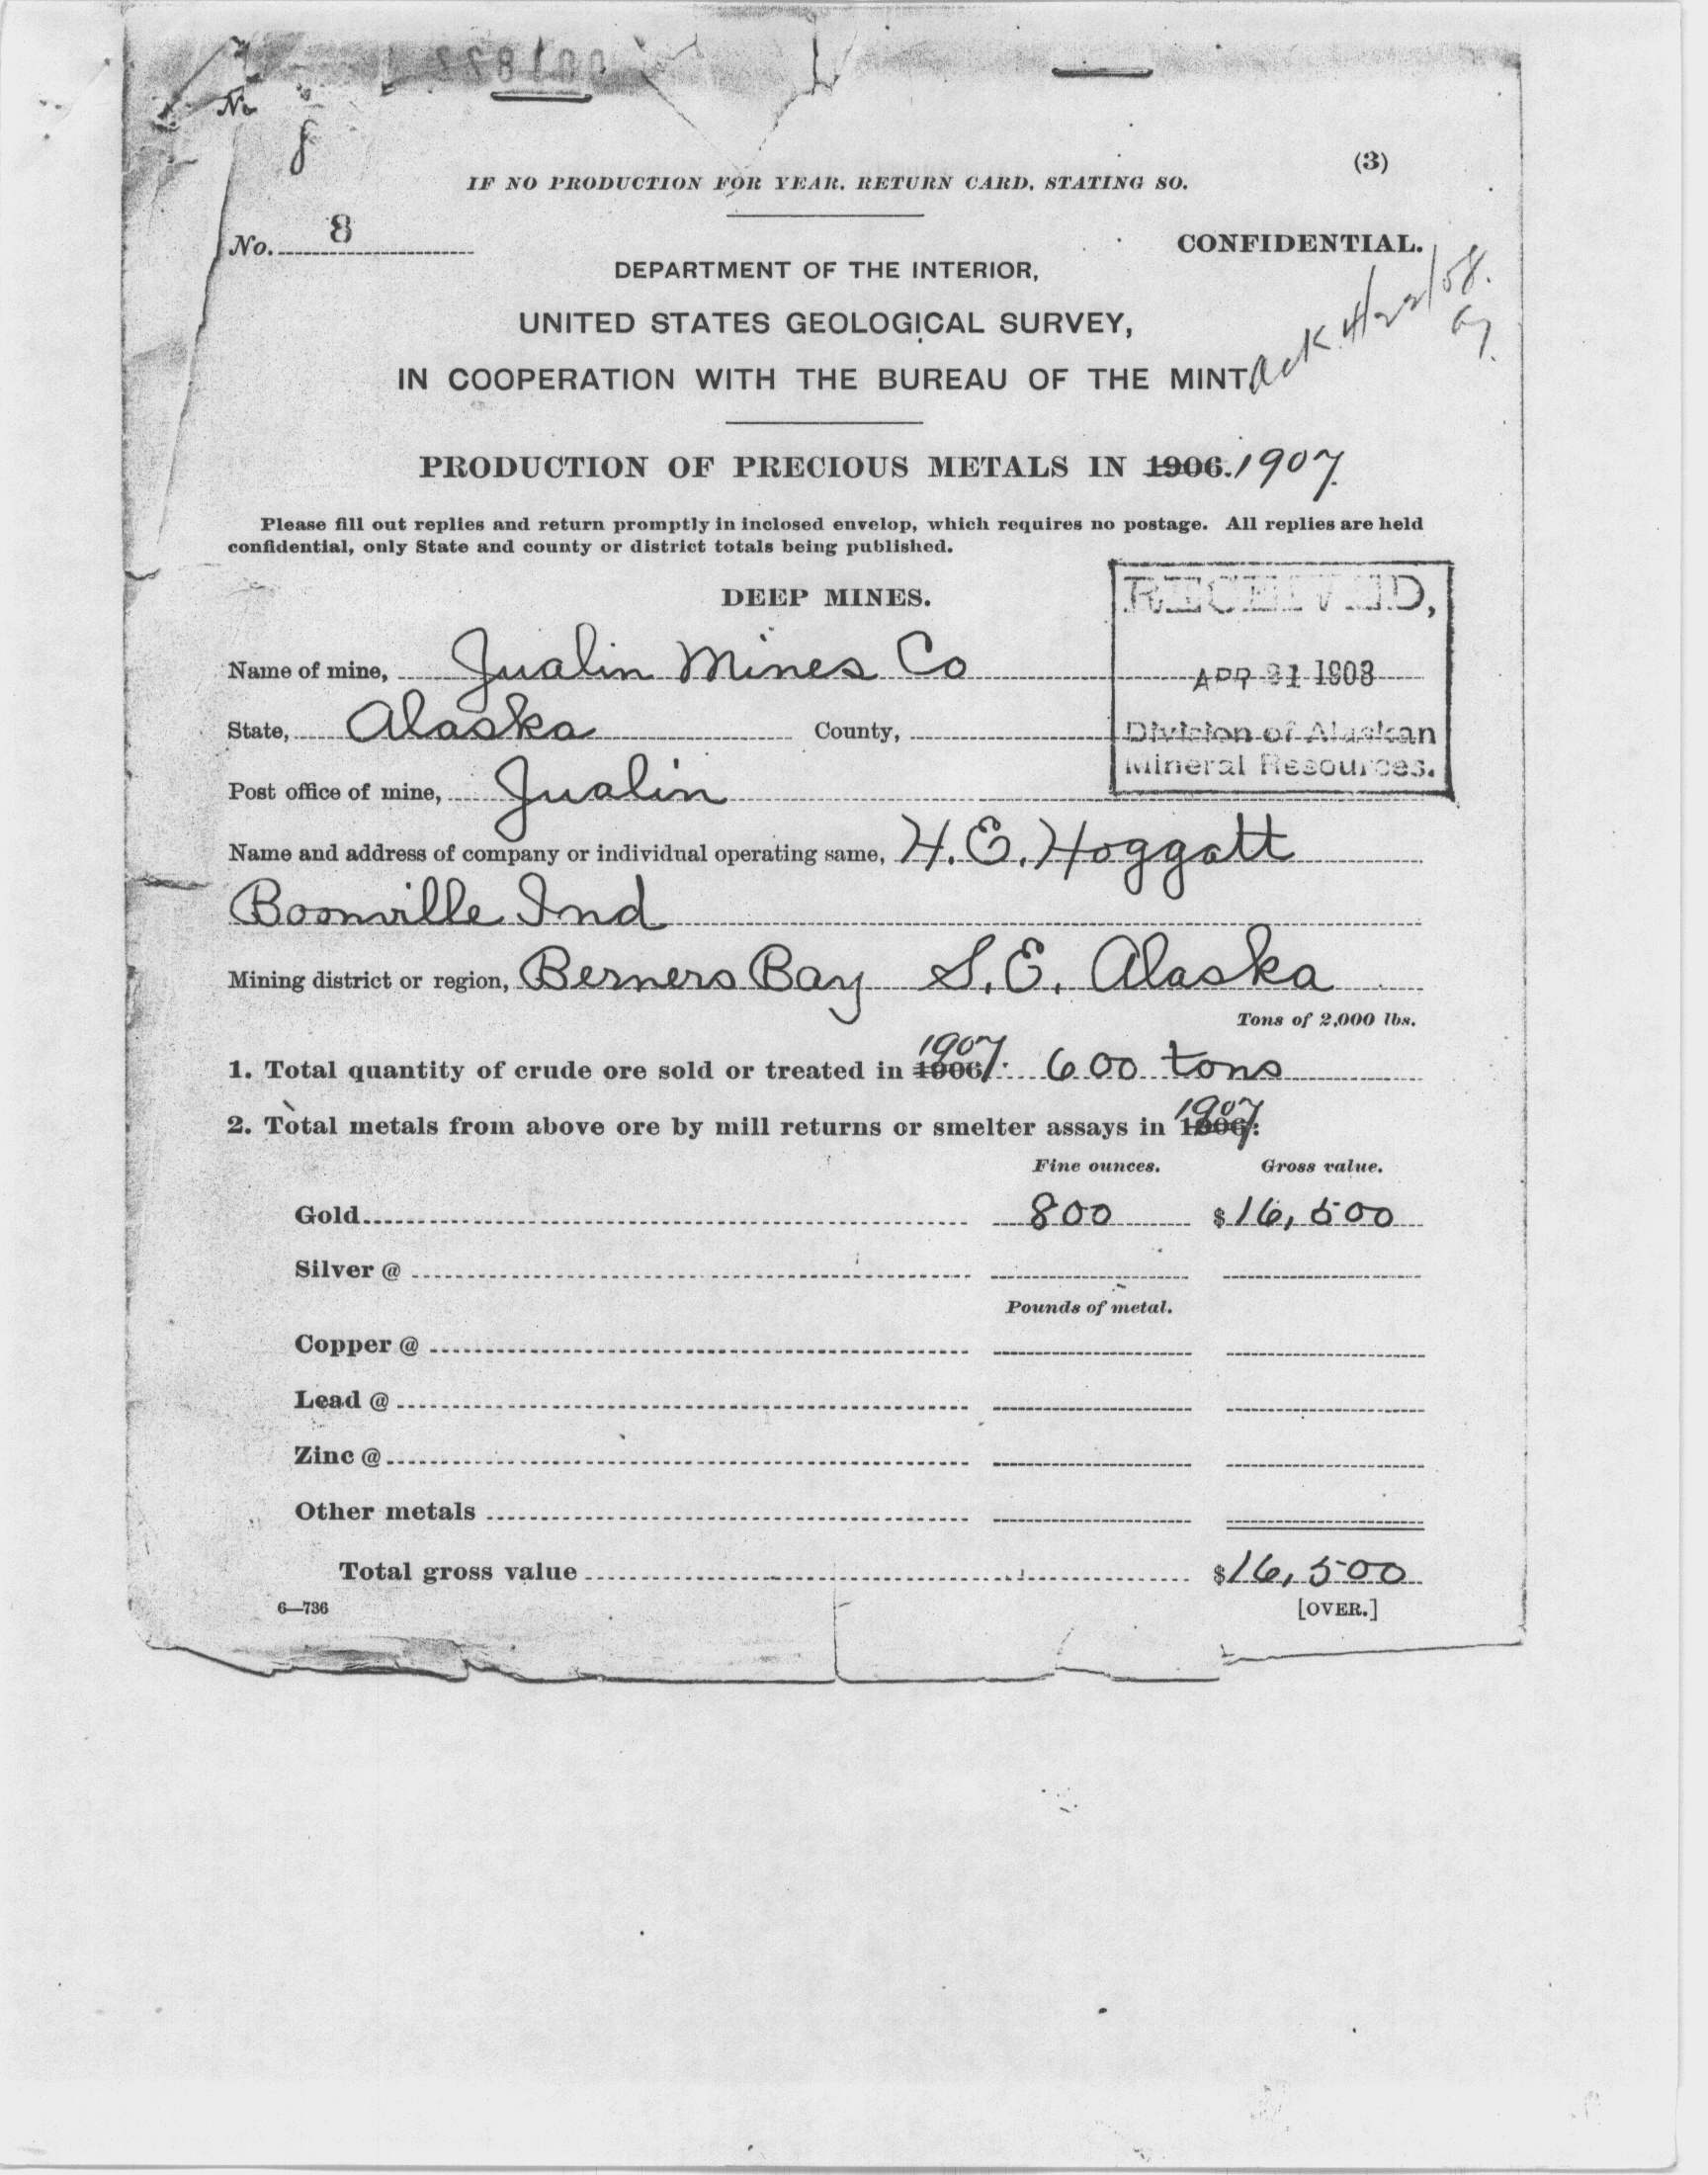 No
8
(3)
IF NO PRODUCTION FOR YEAR, RETURN CARD, STATING SO.
No. 8
CONFIDENTIAL.
DEPARTMENT OF THE INTERIOR,
UNITED STATES GEOLOGICAL SURVEY,
IN COOPERATION WITH THE BUREAU OF THE MINT
Ack. 4/22/08.
PRODUCTION OF PRECIOUS METALS IN 1906. 1907.
Please fill out replies and return promptly in inclosed envelop, which requires no postage. All replies are held
confidential, only State and county or district totals being published.
DEEP MINES.
RECEIVED,
Name of mine, Jualin Mines Co
APR 21 1908
State, Alaska County,
Division of Alaskan
Mineral Resources.
Post office of mine, Jualin
Name and address of company or individual operating same, H. E. Hoggatt
Boonville Ind
Mining district or region, Berners Bay S. E. Alaska
Tons of 2,000 lbs.
1. Total quantity of crude ore sold or treated in 1906: 1907 600 tons
2. Total metals from above ore by mill returns or smelter assays in 1906: 1907
Fine ounces. Gross value.
Gold 800 $16,500
Silver @
Pounds of metal.
Copper @
Lead @
Zinc @
Other metals
Total gross value $16,500
6—736
[OVER.]